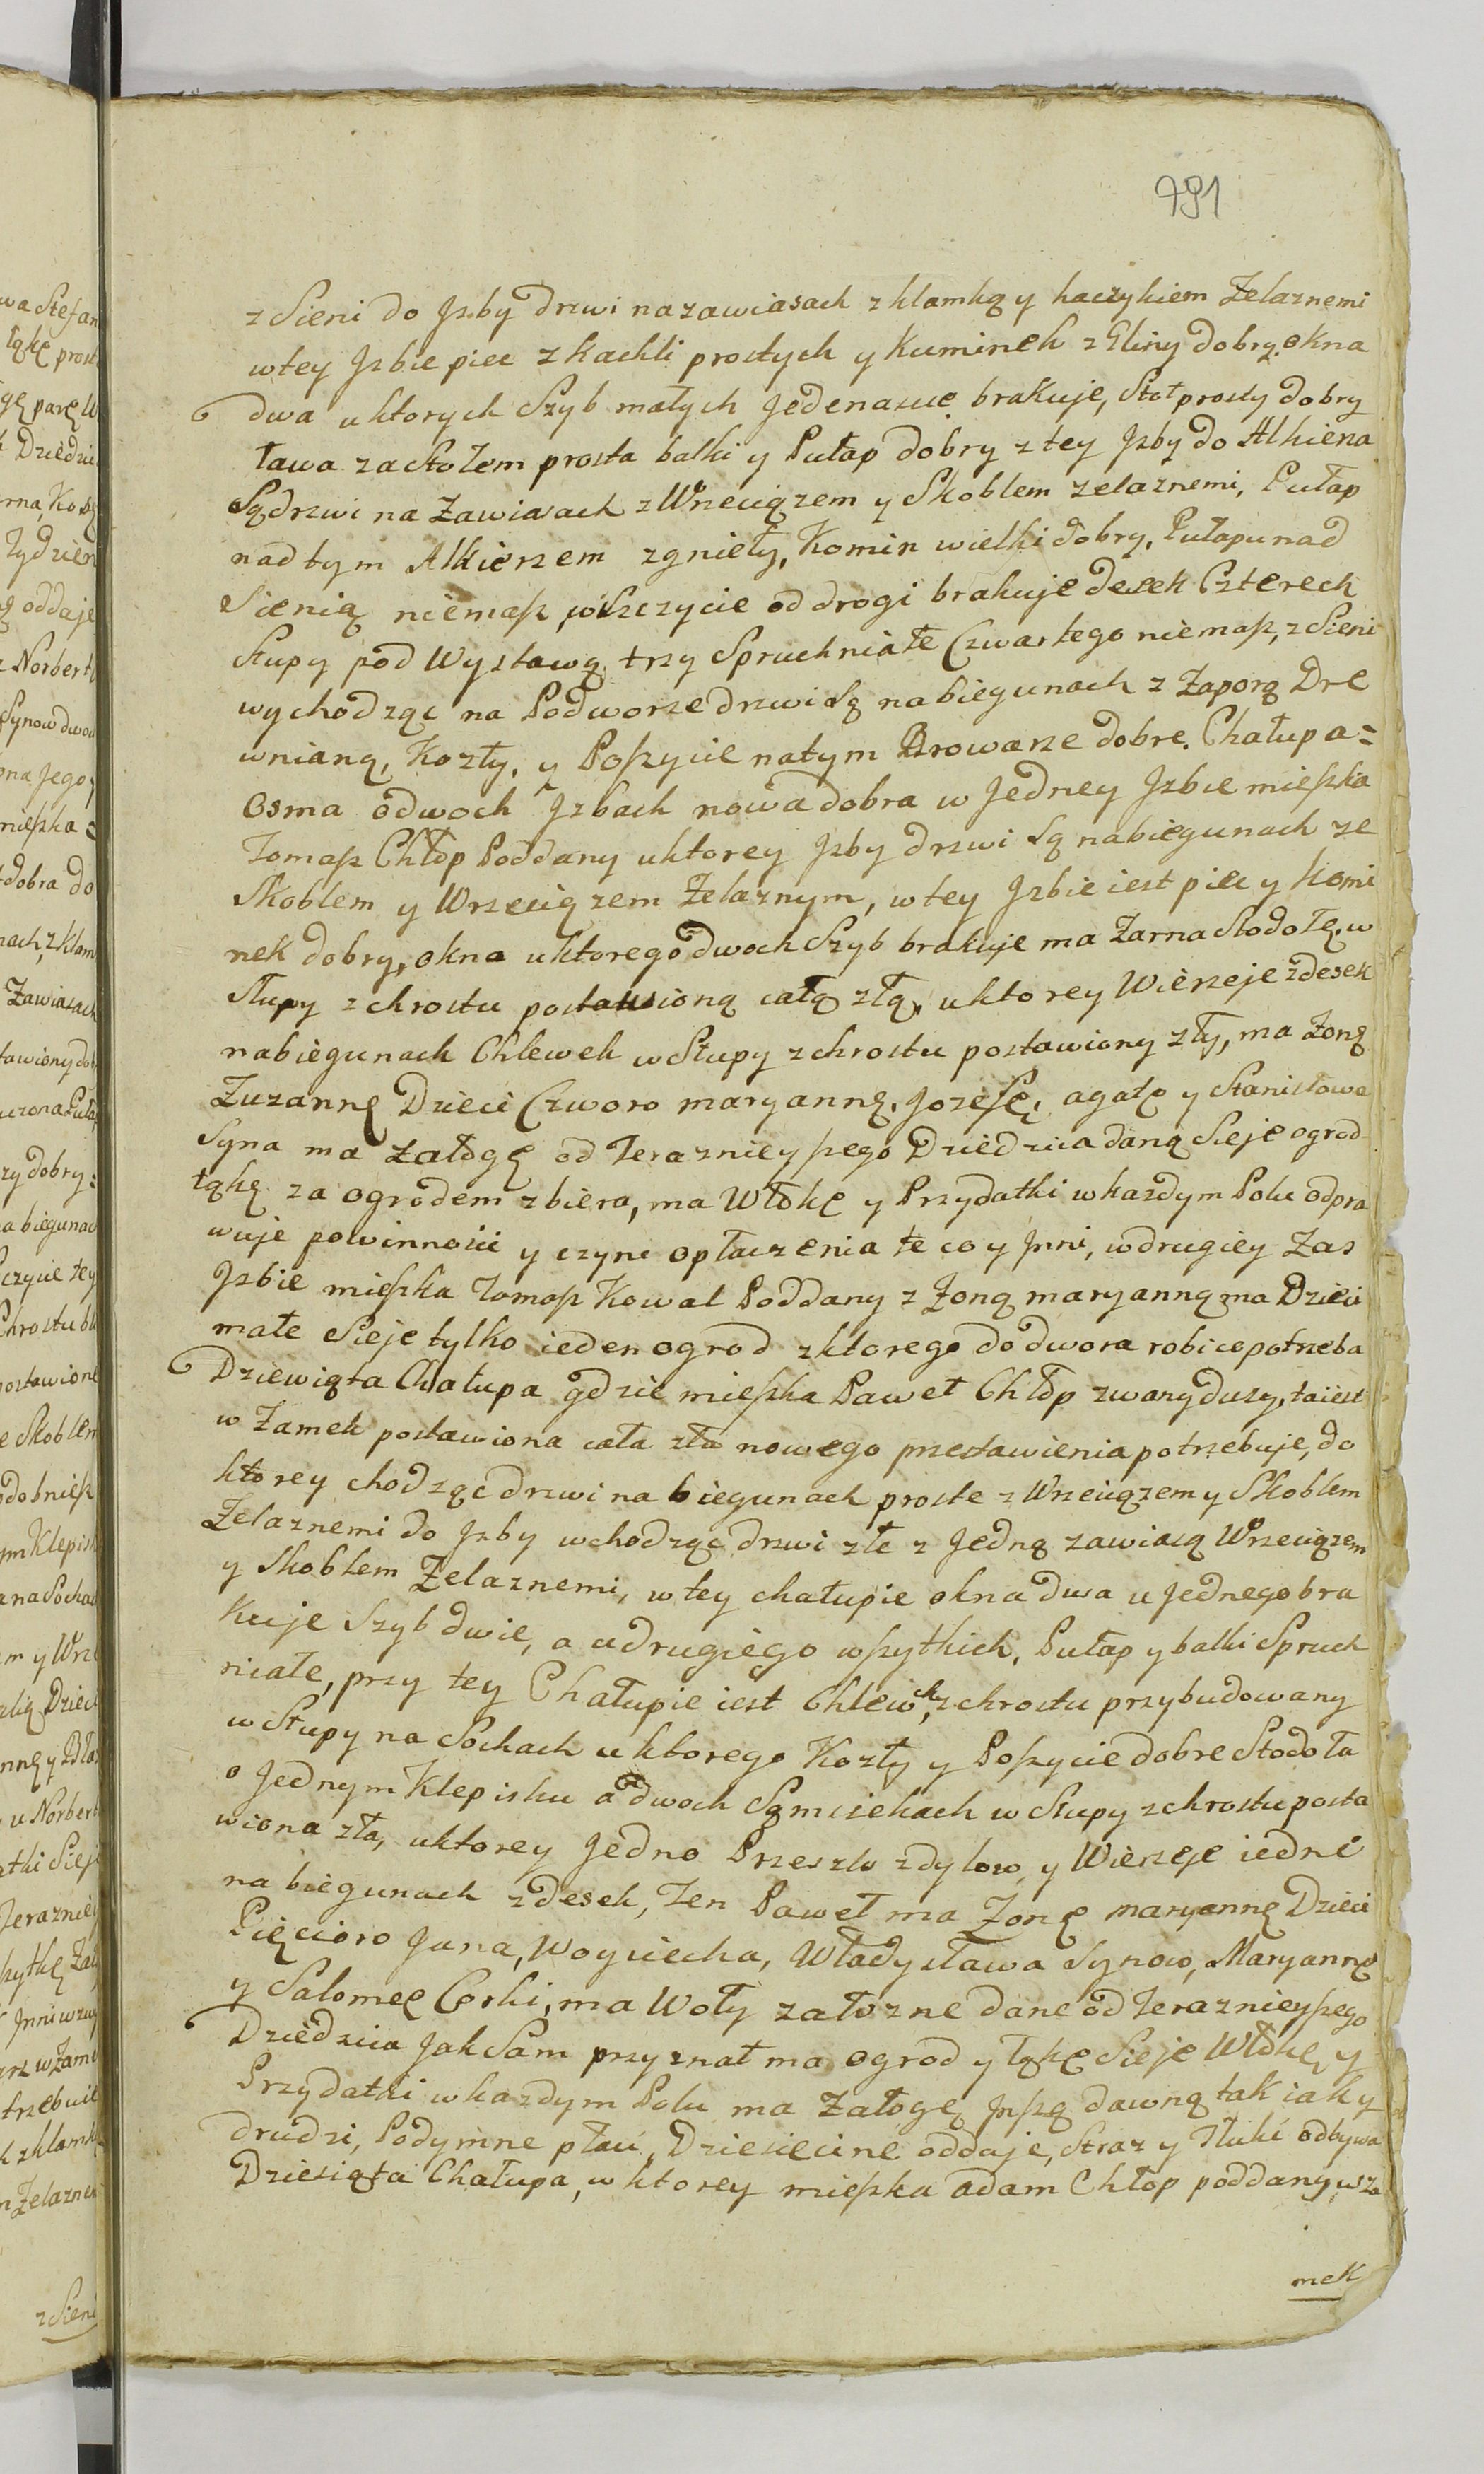 791
z Sieni do Jzby drzwi na zawiasach z klamką y haczykiem Żelaznemi
w tey Jzbie piec z kachli prostych y Kuminek z Gliny dobry. okna
dwa u ktorych Szyb małych Jedenascie brakuje, Stoł prosty dobry
ława za Stołem prosta balki y Pułap dobry z tey Jzby do Alkierza
Są drzwi na Zawiasach z Wrzeciązem y Skoblem zelaznemi, Pułap
nad tym Alkierzem zgnieły, Komin wielki dobry, Pułapu nad
Sienią niemasz, w Szczycie od drogi brakuje desek Czterech
Słupy pod Wystawą trzy Spruchniałe Czwartego niemasz, z Sieni
wychodząc na Podworze drzwi Są na biegunach z Zaporą Dre
wnianą, Kozły, y Poszycie na tym Browarze dobre. Chałupa =
Osma o dwoch Jzbach nowa dobra w Jedney Jzbie mieszka
Tomasz Chłop Poddany u ktorey Jzby drzwi Są na biegunach ze
Skoblem y Wrzeciązem Żelaznym, w tey Jzbie iest piec y Komi
nek dobry, okna u ktorego dwoch Szyb brakuje ma Zarna Stodołę w
Słupy z chrostu postawioną całą złą, u ktorey Wierzeje z desek
na biegunach Chlewek w Słupy z chrostu postawiony zły, ma Zonę
Zuzannę Dzieci Czworo maryannę, Jozefę, agatę y Stanisława
Syna ma załogę od Teraznieyszego Dziedzica daną Sieje ogrod
łąkę za ogrodem zbiera, ma Włokę y Przydatki w kazdym Polu odpra
wuje powinnosci y czyni opłaczenia te co y Jnni, w drugiey Zas
Jzbie mieszka Tomasz Kowal Poddany z Zoną maryanną ma Dzieci
małe Sieje tylko ieden ogrod z ktorego do dwora robi co potrzeba
Dziewiąta Chałupa gdzie mieszka Paweł Chłop zwany duzy, ta iest
w Zamek postawiona cała zła nowego przestawienia potrzebuje, do
ktorey chodząc drzwi na biegunach proste z Wrzeciązem y Skoblem
Żelaznemi do Jzby wchodząc drzwi złe z Jedną zawiasą Wrzeciązem
y Skoblem Żelaznemi, w tey chałupie okna dwa u Jednego bra
kuje Szyb dwie, a u drugiego wszytkich, Pułap y balki Spruch
niałe, przy tey Chałupie iest Chlewek, z chrostu przybudowany
w Słupy na Sochach u ktorego Kozły y Poszycie dobre Stodoła
o Jednym Klepisku o dwoch Sąmsiekach w Słupy z chrostu posta
wiona zła, u ktorey Jedno Przeszło z dylow, y Wierzeje iedne
na biegunach z desek, Ten Paweł ma Zonę maryannę Dzieci
Pięcioro Jana, Woyciecha, Władysława Synow, Maryannę
y Salomeę Corki, ma Woły załozne dane od Teraznieyszego
Dziedzica Jak Sam przyznał ma ogrod y łąkę Sieje Włokę, y
Przydatki w kazdym Polu ma Załogę Jnszą dawną tak iak y
drudzi, Podymne płaci, Dziesiecine oddaje, Straz y Tłuki odbywa
Dziesiąta Chałupa, w ktorey mieszka Adam Chłop poddany w Za
mek